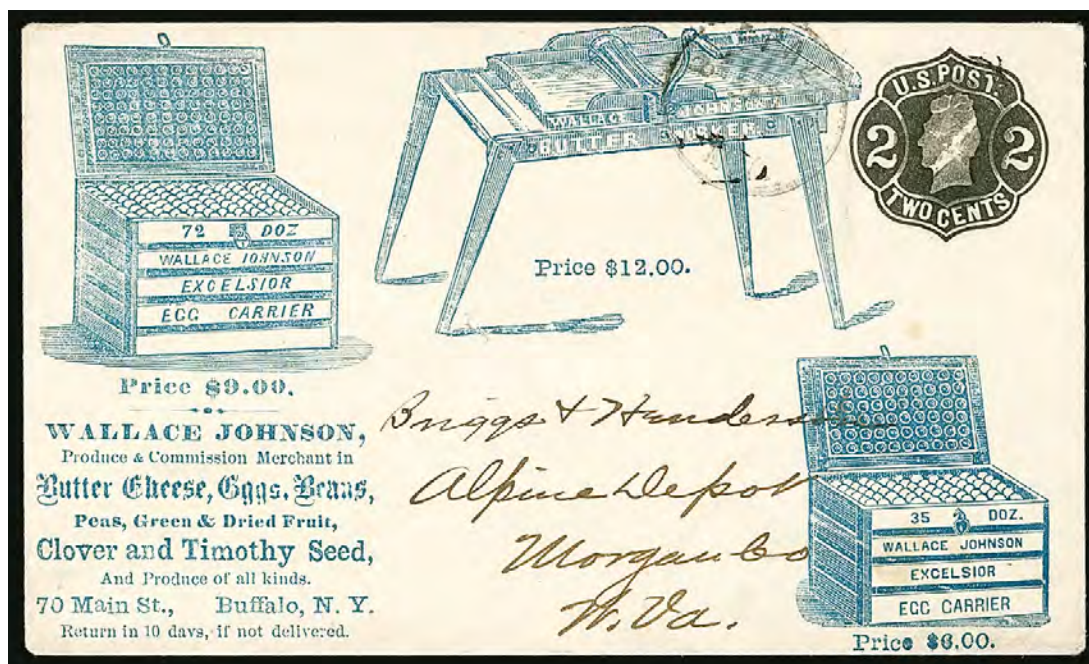 72 DOZ
WALLACE JOHNSON
EXCELSIOR
EGG CARRIER
Price $9.00.
WALLACE JOHNSON,
Produce & Commission Merchant in
Butter Cheese, Eggs, Beans,
Peas, Green & Dried Fruit,
Clover and Timothy Seed,
And Produce of all kinds.
70 Main St., Buffalo, N. Y.
Return in 10 days, if not delivered.
WALLACE JOHNSON
BUTTER
Price $12.00.
U.S. POST.
2 2
TWO CENTS
Briggs & Henderson
Alpine Depot
Morgan Co
W. Va.
35 DOZ.
WALLACE JOHNSON
EXCELSIOR
EGG CARRIER
Price $6.00.